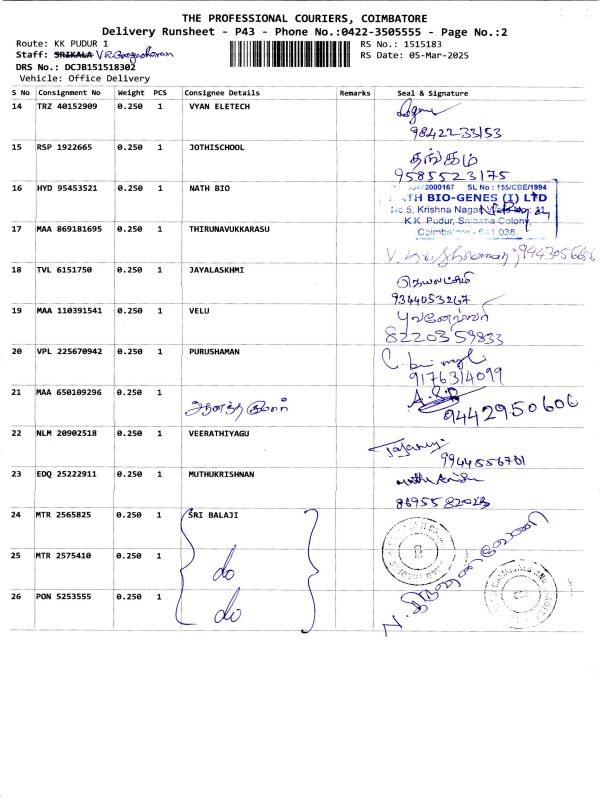 THE PROFESSIONAL COURIERS, COIMBATORE
Delivery Runsheet - P43 - Phone No.:0422-3505555 - Page No.:2
Route: KK PUDUR 1
RS No.: 1515183
Staff: SRIKALA
RS Date: 05-Mar-2025
DRS No.: DCJB151518302
Vehicle: Office Delivery
S No Consignment No Weight PCS Consignee Details Remarks Seal & Signature
14 TRZ 40152909 0.250 1 VYAN ELETECH
9842233153
15 RSP 1922665 0.250 1 JOTHISCHOOL தங்கம்
9585523175
16 HYD 95453521 0.250 1 NATH BIO
/2000167 SL No : 155/CBE/1994
TH BIO-GENES (I) LTD
No.5, Krishna Nagar
K.K. Pudur, Saibaba Colony,
Coimbatore - 641 038.
17 MAA 869181695 0.250 1 THIRUNAVUKKARASU
9443056656
18 TVL 6151750 0.250 1 JAYALASKHMI
9344053267
19 MAA 110391541 0.250 1 VELU
8220359833
20 VPL 225670942 0.250 1 PURUSHAMAN
9176314099
21 MAA 650109296 0.250 1
9442950606
22 NLM 20902518 0.250 1 VEERATHIYAGU
9944556701
23 EDQ 25222911 0.250 1 MUTHUKRISHNAN
24 MTR 2565825 0.250 1 SRI BALAJI
25 MTR 2575410 0.250 1 do
26 PON 5253555 0.250 1 do